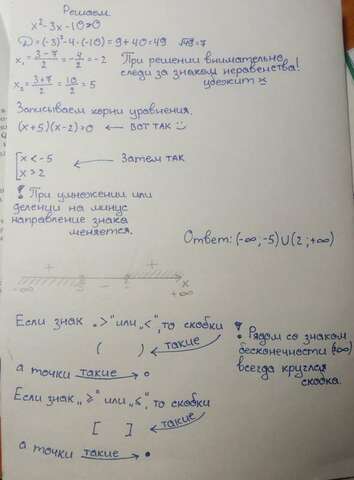 Решаем
x²-3x-10>0
D=(-3)²-4·(-10)=9+40=49 √49=7
x₁=(3-7)/2=-4/2=-2
x₂=(3+7)/2=10/2=5
При решении внимательно
следи за знаком неравенства!
Записываем корни уравнения.
(x+5)(x-2)=0 ← вот так
[x<-5
x>2
← Затем так
! При умножении или
делении на минус
направление знака
меняется.
Ответ: (-∞;-5)∪(2;+∞)
+ - +
-∞ x
+∞
Если знак „>" или „<", то скобки
( ) ← такие
а точки такие → ∘
! Рядом со знаком
бесконечности (∞)
всегда круглая
скобка.
Если знак „≥" или „≤", то скобки
[ ] ← такие
а точки такие → •